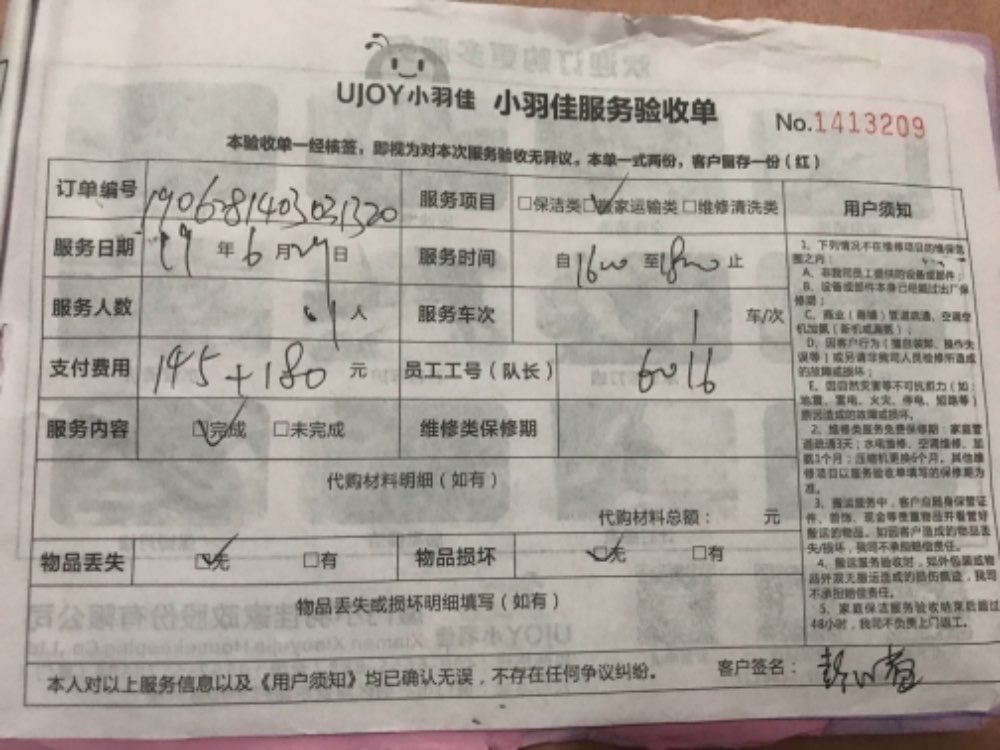 UJOY小羽佳 小羽佳服务验收单
No.1413209
本验收单一经核签，即视为对本次服务验收无异议。本单一式两份，客户留存一份（红）
订单编号 1906281403031320 服务项目 □保洁类 ☑搬家运输类 □维修清洗类
服务日期 19年6月29日 服务时间 自1600至1800止
服务人数 人 服务车次 1 车/次
支付费用 195+180 元 员工工号（队长） 6016
服务内容 ☑完成 □未完成 维修类保修期
代购材料明细（如有）
代购材料总额： 元
物品丢失 ☑无 □有 物品损坏 ☑无 □有
物品丢失或损坏明细填写（如有）
本人对以上服务信息以及《用户须知》均已确认无误，不存在任何争议纠纷。 客户签名：
用户须知
1、下列情况不在维修项目的维保范
围之内：
A、非我司员工提供的设备或部件；
B、设备或部件本身已经超过出厂保
修期；
C、商业（商铺）管道疏通、空调单
机加氨（新机或漏氨）；
D、因客户行为（擅自装卸、操作失
误等）或另请非我司人员检修所造成
的故障或损坏；
E、因自然灾害等不可抗拒力（如：
地震、雷电、火灾、停电、短路等）
原因造成的故障或损坏。
2、维修类服务免费保修期：家庭管
道疏通3天；水电维修、空调维修、加
氨1个月；压缩机更换6个月。其他维
修项目以服务验收单填写的保修期为
准。
3、搬运服务中，客户应随身保管证
件、首饰、现金等贵重物品并看管好
搬运的物品。如因客户造成的物品丢
失/损坏，我司不承担赔偿责任。
4、搬运服务验收时，如外包装或物
品外观无搬运造成的损伤痕迹，我司
不承担赔偿责任。
5、家庭保洁服务验收结束后超过
48小时，我司不负责上门返工。